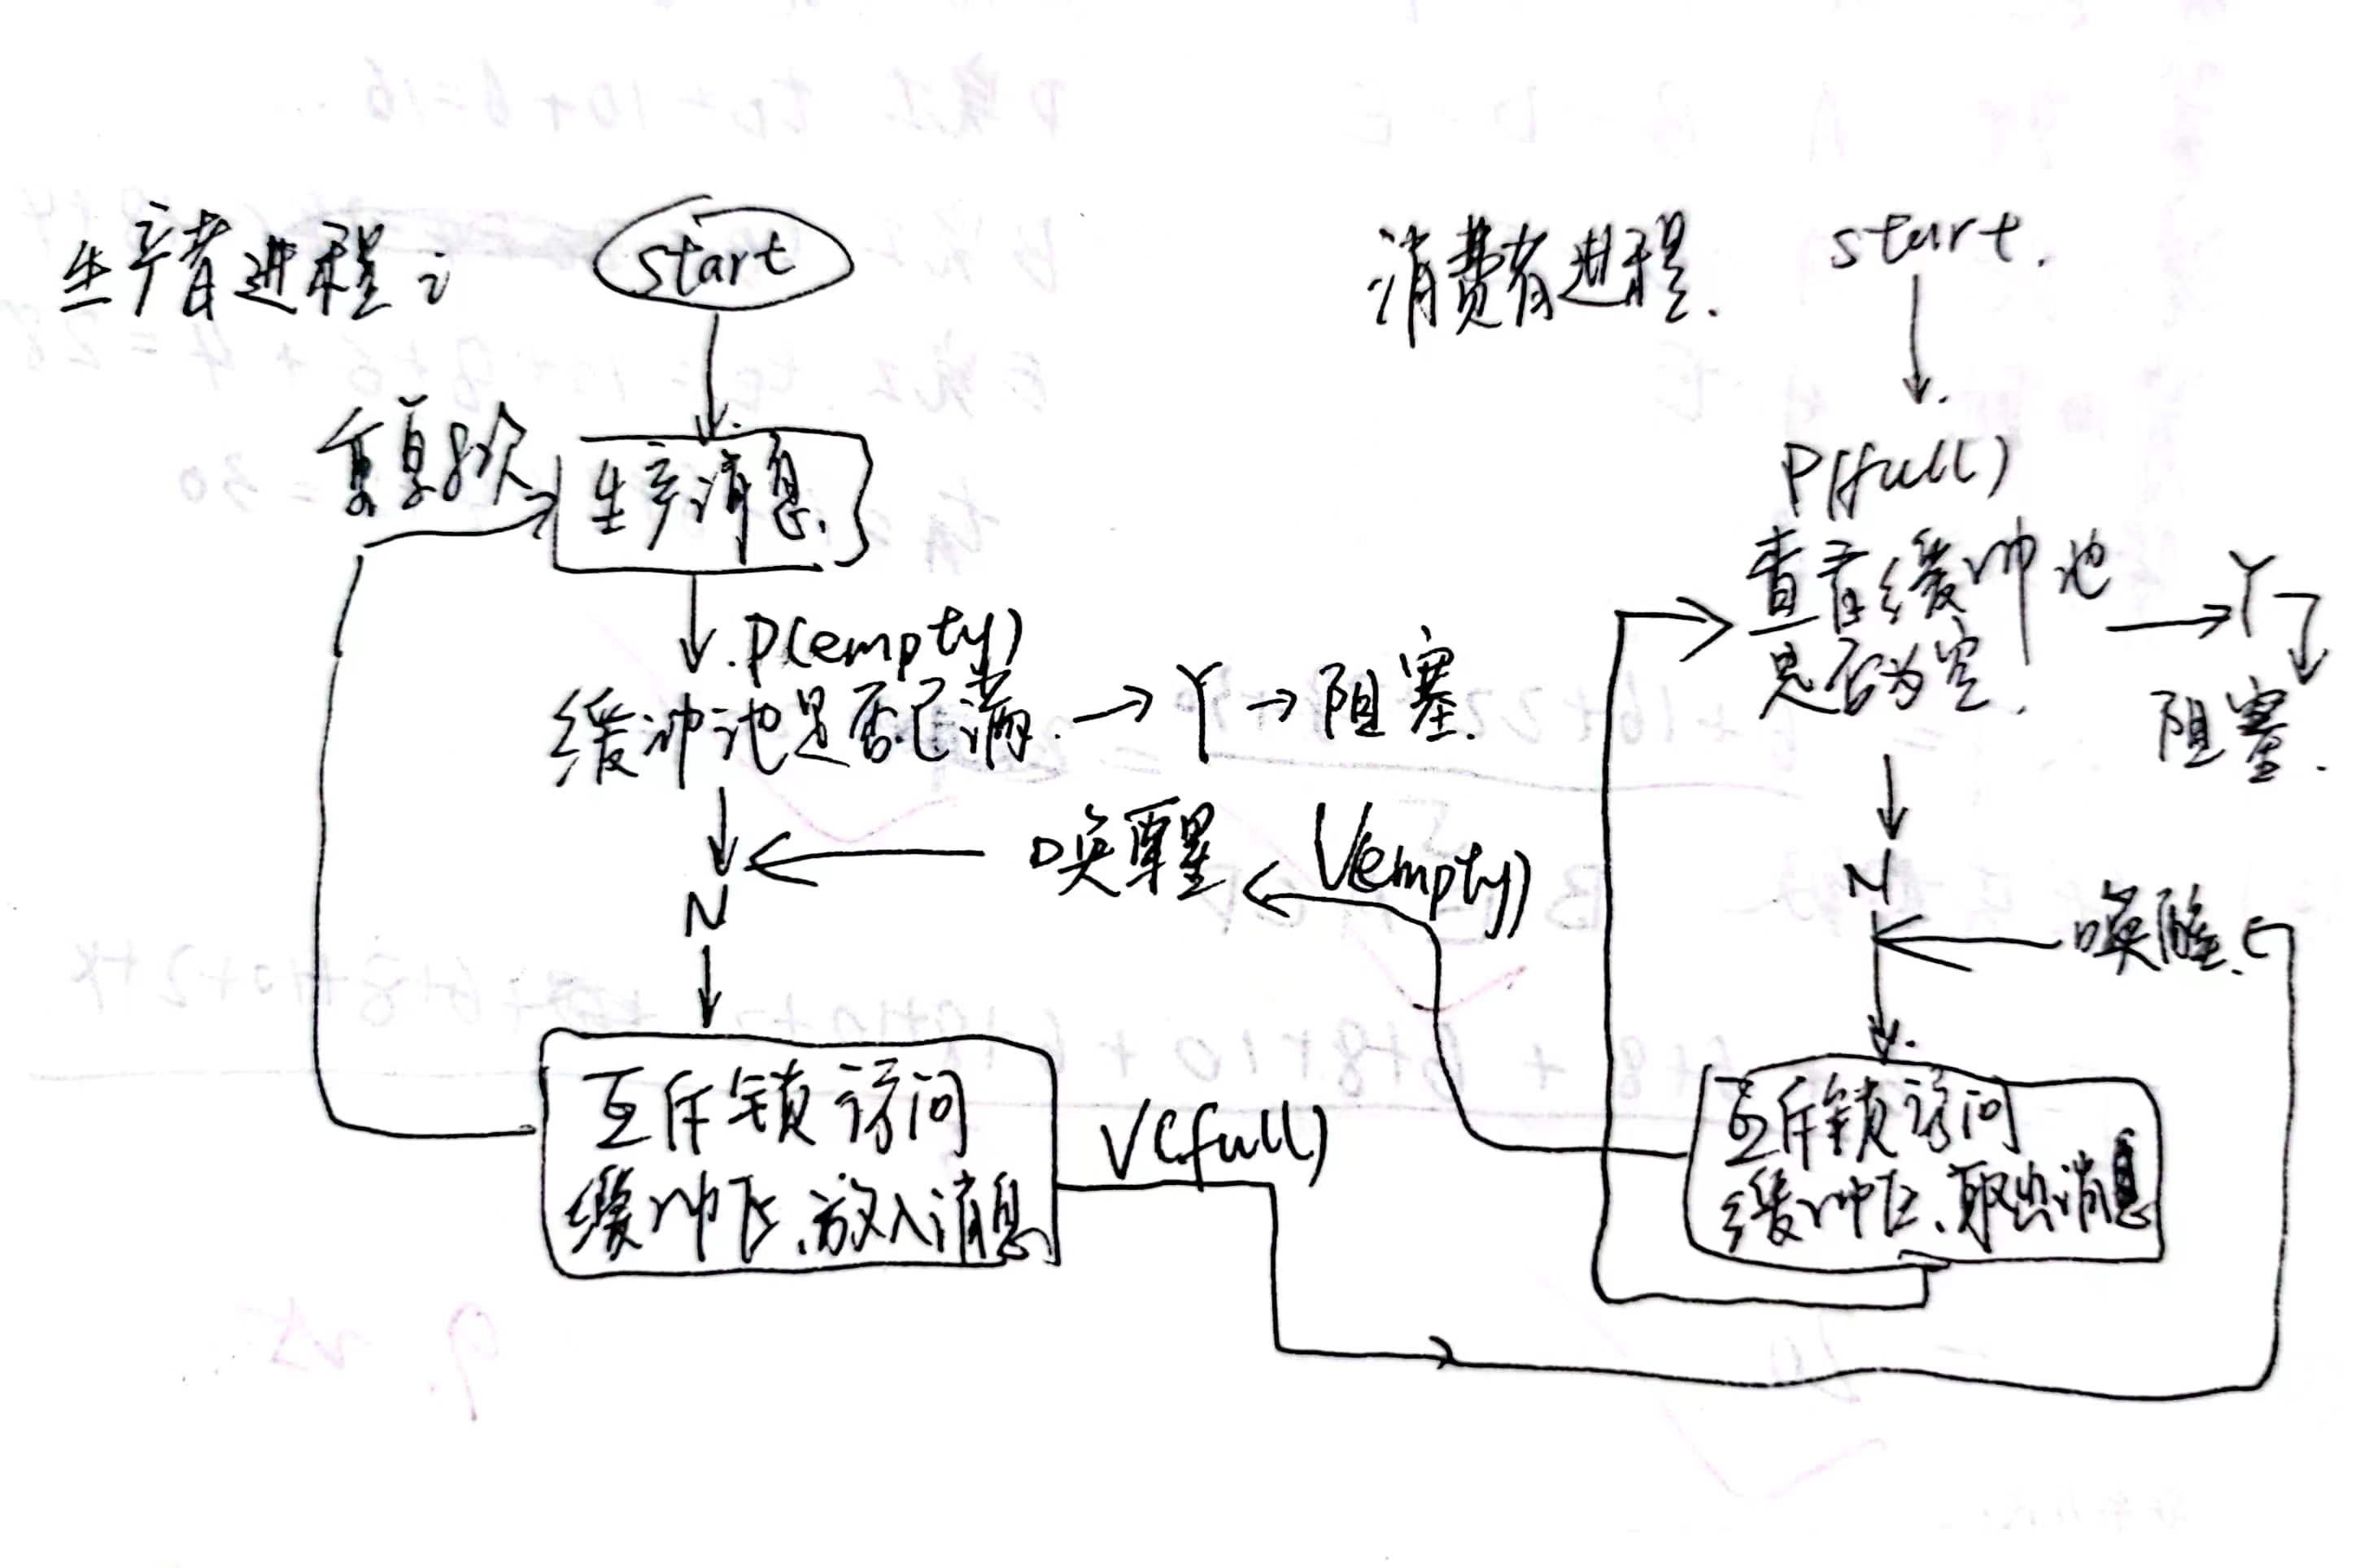 生产者进程i
start
重复8次
生产消息.
P(empty)
缓冲池是否已满. → Y → 阻塞.
唤醒
V(empty)
N
互斥锁访问
缓冲区.放入消息
V(full)
消费者进程.
start.
P(full)
查看缓冲池
是否为空.
Y
阻塞.
N
唤醒.
互斥锁访问
缓冲区、取出消息